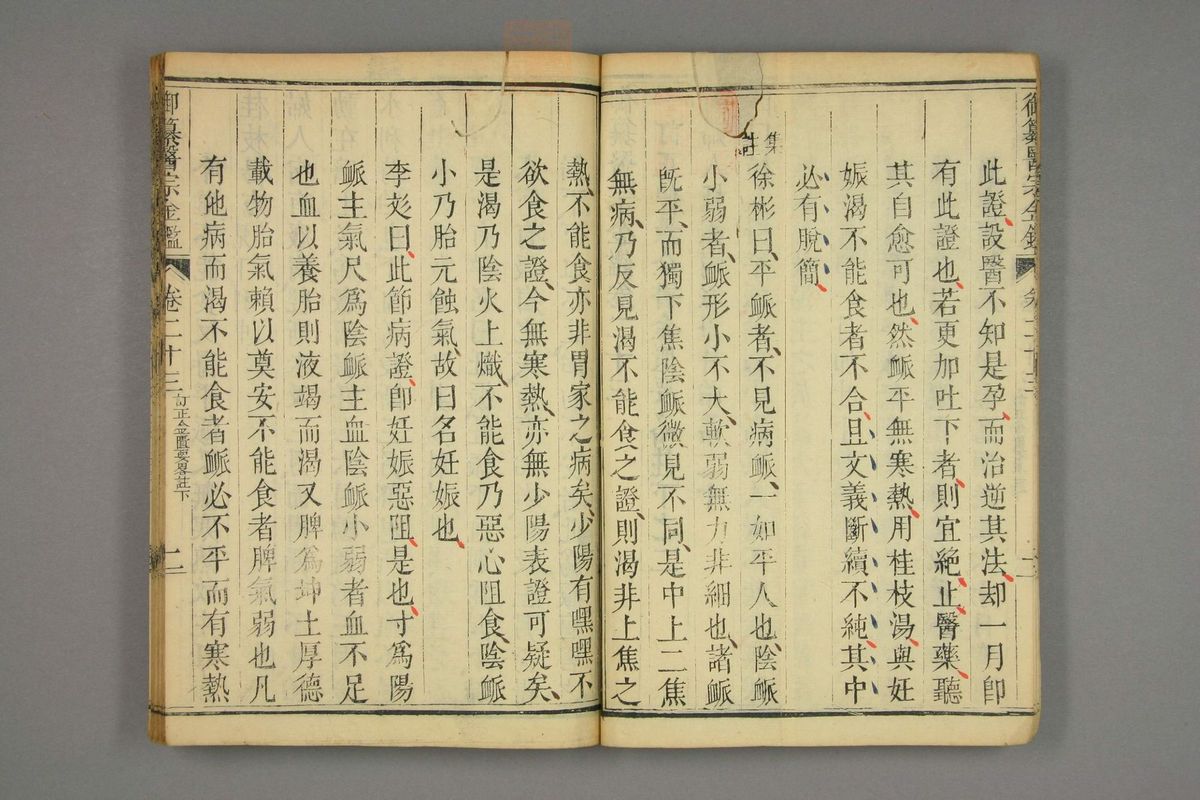 御纂醫宗金鑑
卷二十三
此證設醫不知是孕而治逆其法却一月卽
有此證也若更加吐下者則宜絶止醫藥聽
其自愈可也然脈平無寒熱用桂枝湯與妊
娠渴不能食者不合且文義斷續不純其中
必有脫簡
集註
徐彬曰平脈者不見病脈一如平人也陰脈
小弱者脈形小不大軟弱無力非細也諸脈
旣平而獨下焦陰脈微見不同是中上二焦
無病乃反見渴不能食之證則渴非上焦之
熱不能食亦非胃家之病矣少陽有嘿嘿不
欲食之證今無寒熱亦無少陽表證可疑矣
是渴乃陰火上熾不能食乃惡心阻食陰脈
小乃胎元蝕氣故曰名妊娠也
李彣曰此節病證卽妊娠惡阻是也寸爲陽
脈主氣尺爲陰脈主血陰脈小弱者血不足
也血以養胎則液竭而渴又脾爲坤土厚德
載物胎氣賴以奠安不能食者脾氣弱也凡
有他病而渴不能食者脈必不平而有寒熱
御纂醫宗金鑑
卷二十三
訂正金匱要畧註下
二